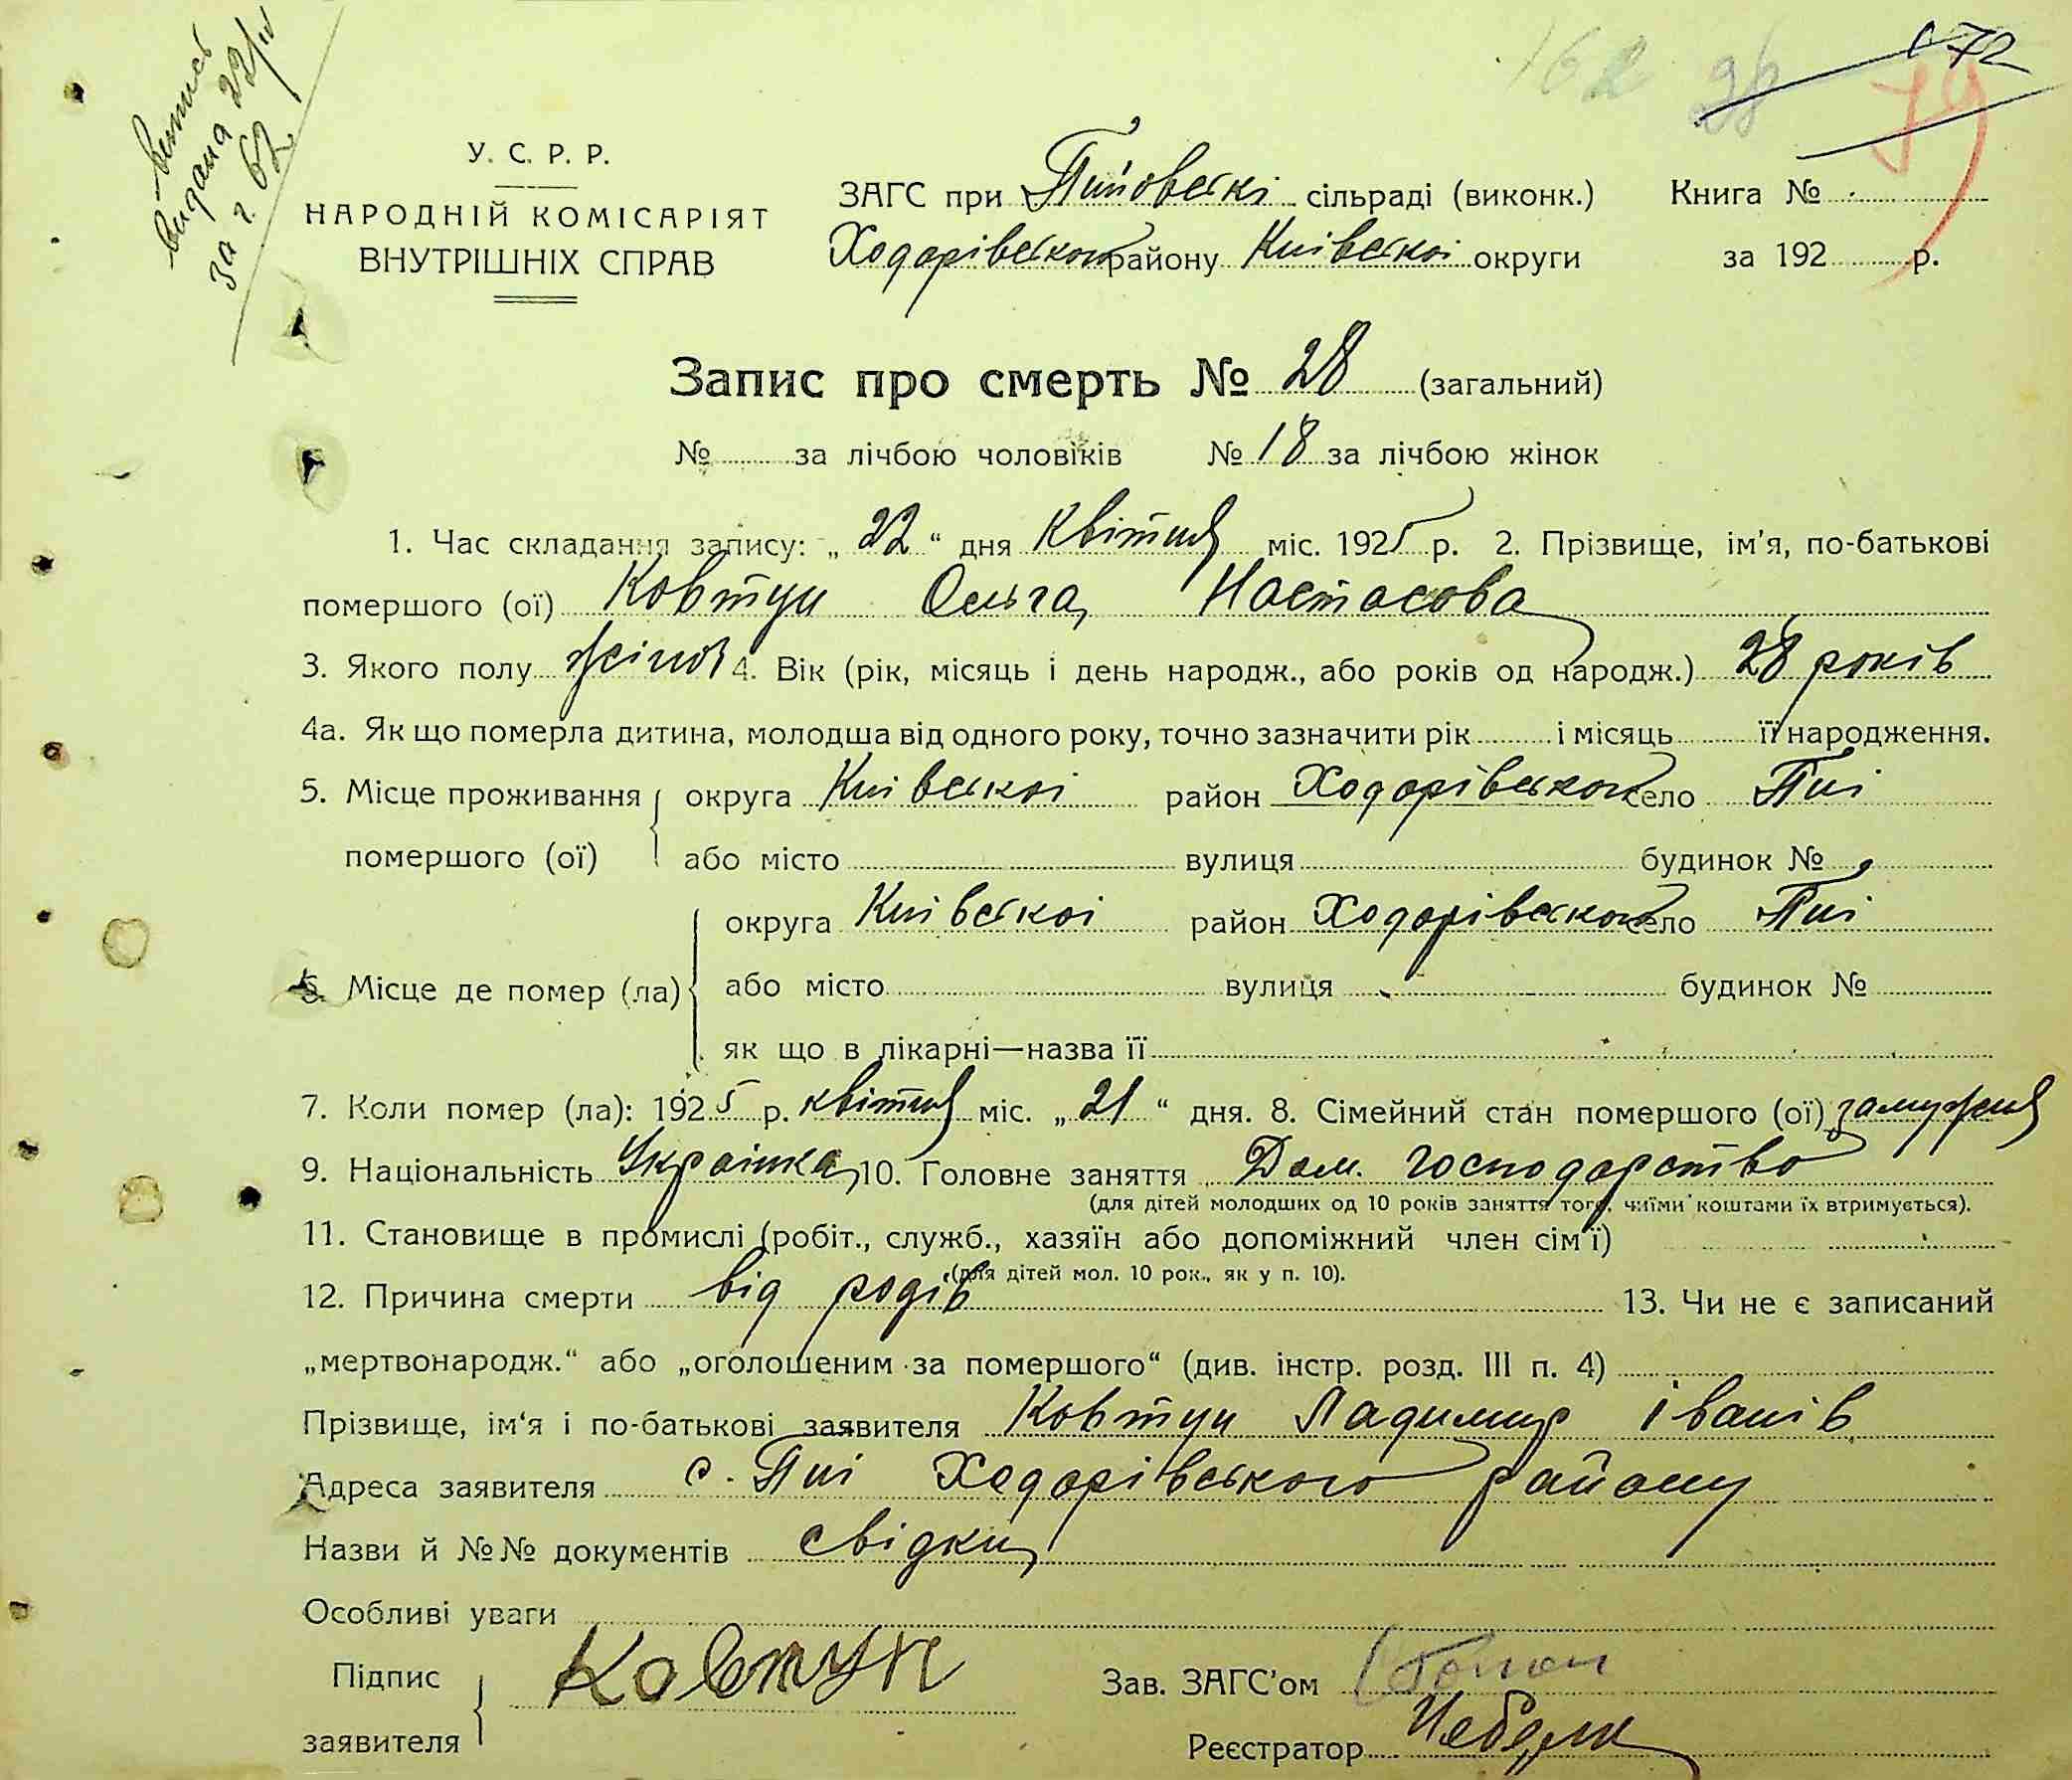 випись
видана 22/IV
за г. 62
162 28 172
79
У. С. Р. Р.
НАРОДНІЙ КОМІСАРІЯТ
ВНУТРІШНІХ СПРАВ
ЗАГС при Пиювські сільраді (виконк.) Книга №
Ходорівського району Київської округи за 192 р.
Запис про смерть № 28 (загальний)
№ за лічбою чоловіків № 18 за лічбою жінок
1. Час складання запису: „ 22 “ дня Квітня міс. 1925 р. 2. Прізвище, ім'я, по-батькові
помершого (ої) Ковтун Ольга Настасова
3. Якого полу жіноч 4. Вік (рік, місяць і день народж., або років од народж.) 28 років
4а. Як що померла дитина, молодша від одного року, точно зазначити рік і місяць її народження.
5. Місце проживання округа Київскоі район Ходорівського село Пії
помершого (ої) або місто вулиця будинок №
округа Київскоі район Ходорівського село Пії
6. Місце де помер (ла) або місто вулиця будинок №
як що в лікарні—назва її
7. Коли помер (ла): 1925 р. квітня міс. „ 21 “ дня. 8. Сімейний стан помершого (ої) замужня
9. Національність Українка 10. Головне заняття Дом. господарство
(для дітей молодших од 10 років заняття того, чиїми коштами їх втримується).
11. Становище в промислі (робіт., служб., хазяїн або допоміжний член сім'ї)
(для дітей мол. 10 рок., як у п. 10).
12. Причина смерти від родів 13. Чи не є записаний
„мертвонародж.“ або „оголошеним за помершого“ (див. інстр. розд. III п. 4)
Прізвище, ім'я і по-батькові заявителя Ковтун Ладимир Іванів
Адреса заявителя с. Пії Ходорівського району
Назви й №№ документів свідки
Особливі уваги
Підпис Ковтун Зав. ЗАГС'ом
заявителя Реєстратор